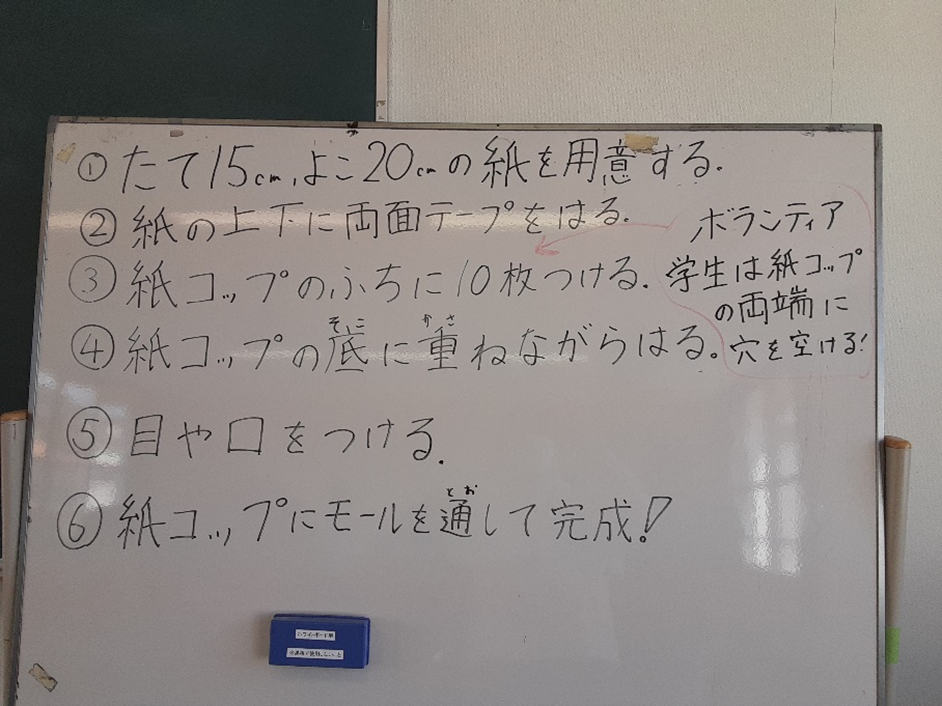 ① たて15cm、よこ20cmの紙を用意する.
② 紙の上下に両面テープをはる.
③ 紙コップのふちに10枚つける.
④ 紙コップの底に重ねながらはる。
そこ かさ
⑤ 目や口をつける.
⑥ 紙コップにモールを通して完成!
とお
ボランティア
学生は紙コップ
の両端に
穴を空ける!